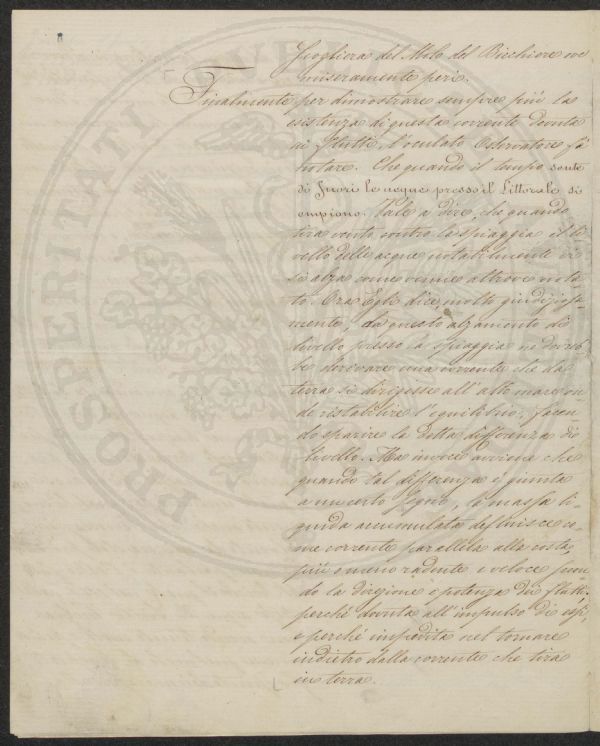 Scogliera del Molo del Bicchiere ove
miseramente perì.
Finalmente per dimostrare sempre più la
esistenza di questa corrente dovuta
ai flutti, l'oculato Osservatore fà
notare. Che quando il tempo sente
di Fuori le acque presso il Littorale si
empiono. Vale a dire, che quando
tira vento contro la spiaggia il li-
vello delle acque notabilmente vi
si alza come venne altrove nota-
to. Ora Egli dice, molto giudiziosa-
mente, da questo alzamento di
livello presso la spiaggia ne dovreb-
be derivare una corrente che da
terra si dirigesse all'alto mare on-
de ristabilire l'equilibrio, facen-
do sparire la detta differenza di
livello. Ma invece avviene che
quando tal differenza è giunta
a un certo segno, la massa li-
quida accumulata defluisce co-
me corrente parallela alla costa,
più o meno radente e veloce secon-
do la direzione e potenza dei flutti,
perchè dovuta all'impulso di essi,
e perchè impedita nel tornare
indietro dalla corrente che tira
in terra.
PROSPERITATI